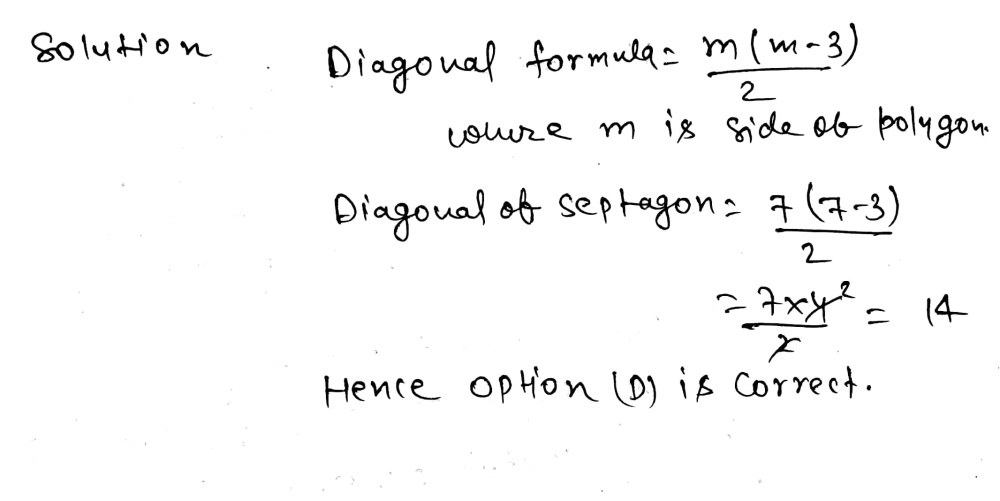 Solution Diagonal formula = m(m-3)/2
where m is side of polygon.
Diagonal of septagon = 7(7-3)/2
= 7×4²/2 = 14
Hence option (D) is correct.